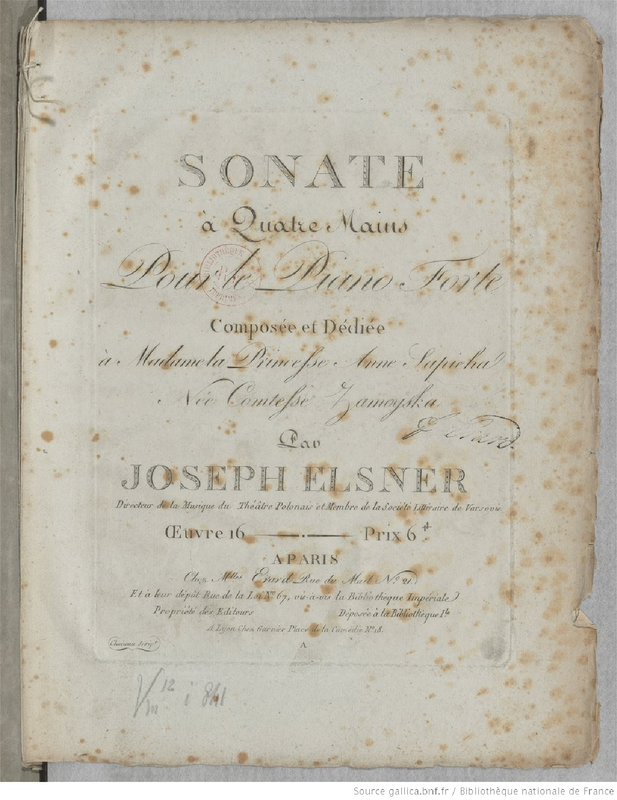 SONATE
à Quatre Mains
Pour le Piano Forte
Composée et Dédiée
à Madame la Princesse Anne Sapieha
Née Comtesse Zamoyska
Par
JOSEPH ELSNER
Directeur de la Musique du Théâtre Polonais et Membre de la Société Littéraire de Varsovie
Œuvre 16 Prix 6#
A PARIS
Chez Mlles Erard Rue du Mail No. 21.
Et à leur dépôt Rue de la Loi No. 67, vis-à-vis la Bibliothèque Impériale
Propriété des Editeurs Déposée à la Bibliothèque Ile
à Lyon Chez Garnier Place de la Comédie No. 18.
A
Vm 12 i 841
Source gallica.bnf.fr / Bibliothèque nationale de France